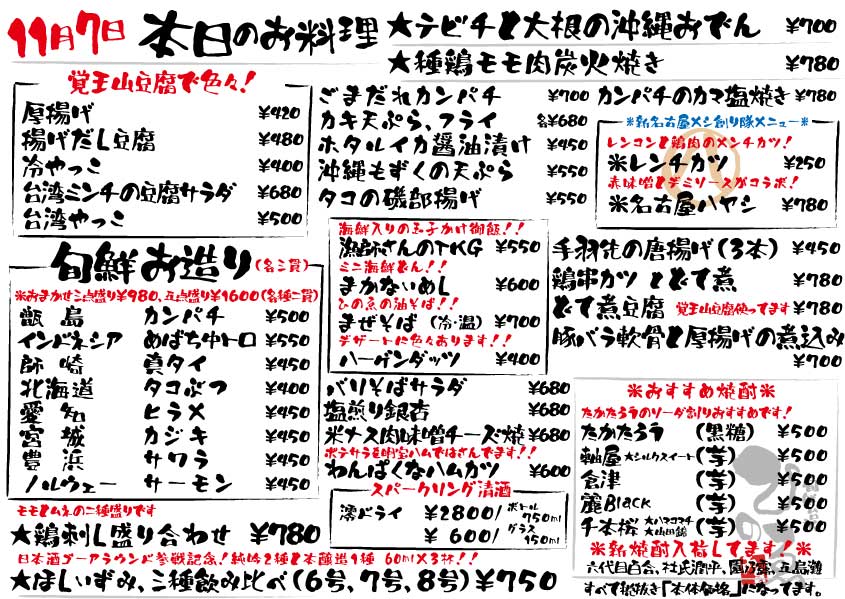 11月7日 本日のお料理
★テビチと大根の沖縄おでん ¥700
★種鶏モモ肉炭火焼き ¥780
覚王山豆腐で色々!
厚揚げ ¥420
揚げだし豆腐 ¥480
冷やっこ ¥400
台湾ミンチの豆腐サラダ ¥680
台湾やっこ ¥500
ごまだれカンパチ ¥700
カキ天ぷら、フライ 各¥680
ホタルイカ醤油漬け ¥450
沖縄もずくの天ぷら ¥550
タコの磯部揚げ ¥550
カンパチのカマ塩焼き ¥780
※新名古屋メシ創り隊メニュー※
レンコンと鶏肉のメンチカツ!
米レンチカツ ¥250
赤味噌とデミソースがコラボ!
米名古屋ハヤシ ¥780
旬鮮お造り(各三貫)
※おまかせ三点盛り¥980、五点盛り¥1600(各種二貫)
甑島 カンパチ ¥500
インドネシア めばち中トロ ¥550
師崎 真タイ ¥450
北海道 タコぶつ ¥400
愛知 ヒラメ ¥450
宮城 カジキ ¥450
豊浜 サワラ ¥450
ノルウェー サーモン ¥450
海鮮入りの玉子かけ御飯!!
漁師さんのTKG ¥550
ミニ海鮮どん!!
まかないめし ¥600
ひの魚の油そば!!
まぜそば (冷・温) ¥700
デザートに色々あります!!
ハーゲンダッツ ¥400
手羽先の唐揚げ(3本) ¥450
鶏串カツ とどて煮 ¥780
どて煮豆腐 覚王山豆腐使ってます ¥780
豚バラ軟骨と厚揚げの煮込み
¥700
バリそばサラダ ¥680
塩煎り銀杏 ¥680
米ナス肉味噌チーズ焼 ¥680
ポテサラを明宝ハムではさんでます!!
わんぱくなハムカツ ¥600
スパークリング清酒
澪ドライ ¥2800/ボトル750ml
¥600/グラス150ml
※おすすめ焼酎※
たかたろうのソーダ割りおすすめです!
たかたろう (黒糖) ¥500
軸屋★シルクスイート (芋) ¥500
倉津 (芋) ¥500
麗Black (芋) ¥500
千本桜 ★ハマコマチ ★山田錦 (芋) ¥500
※新焼酎入荷してます!※
六代目百合、杜氏潤平、園乃露、五島灘
すべて税抜き「本体価格」になってます。
モモとムネの二種盛りです
★鶏刺し盛り合わせ ¥780
日本酒ゴーアラウンド参戦記念!純吟2種と本醸造1種 60ml×3杯!!
★ほしいずみ、三種飲み比べ(6号、7号、8号)¥750